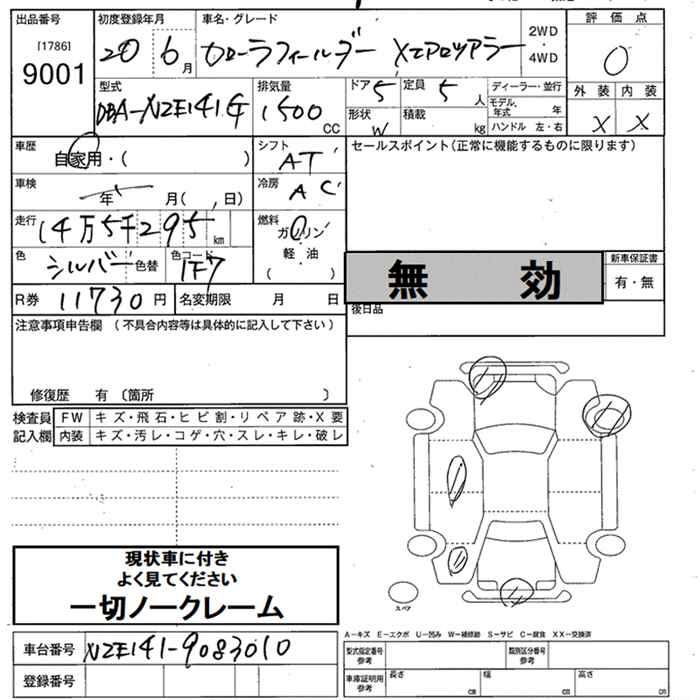 出品番号 初度登録年月 車名・グレード 評価点
[1786]
9001
20 6月 カローラフィールダー XエアロツアラーX 2WD・4WD 0
型式 排気量 ドア 定員 ディーラー・並行 外装 内装
DBA-NZE141G 1500CC 5 5人 モデル年式 年 X X
形状 W 積載 kg ハンドル 左・右
車歴 シフト セールスポイント(正常に機能するものに限ります)
自家用・( ) AT
車検 年 月( 日) 冷房 AC
走行 14万5千295km 燃料 ガソリン
軽油
( )
色 シルバー 色替 色コード 1F7 新車保証書
無効 有・無
R券 11730円 名変期限 月 日 後日品
注意事項申告欄 (不具合内容等は具体的に記入して下さい)
修復歴 有 〔箇所 〕
検査員 FW キズ・飛石・ヒビ割・リペア跡・X要
記入欄 内装 キズ・汚レ・コゲ・穴・スレ・キレ・破レ
現状車に付き
よく見てください
一切ノークレーム
スペア
A-キズ E-エクボ U-凹み W-補修跡 S-サビ C-腐食 XX-交換済
車台番号 NZE141-9083010 型式指定番号 参考 類別区分番号 参考
登録番号 車庫証明用 参考 長さ cm 幅 cm 高さ cm